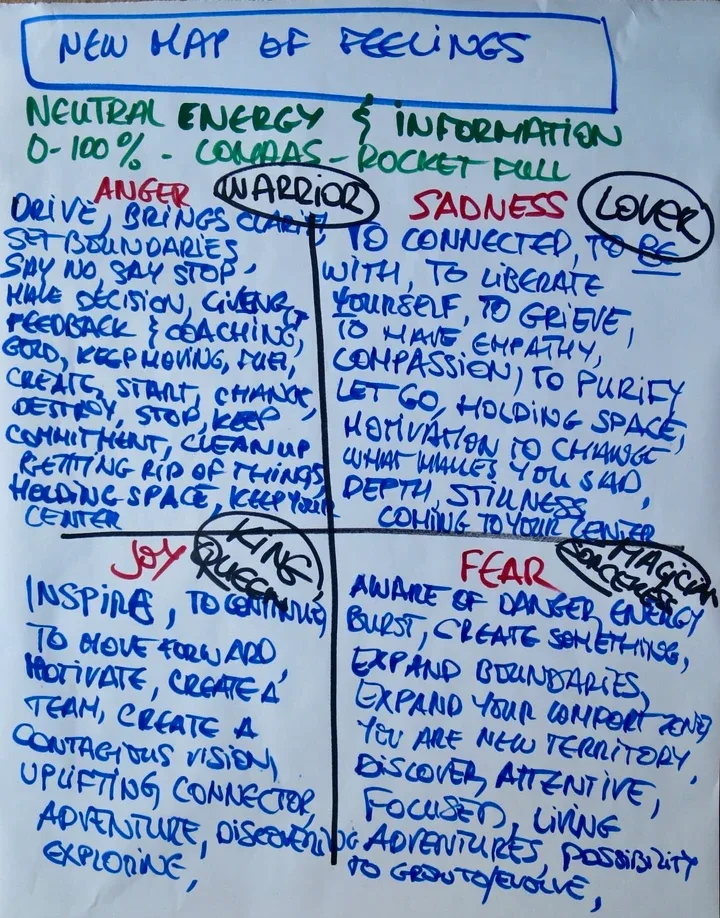 NEW MAP OF FEELINGS
NEUTRAL ENERGY & INFORMATION
0-100% - COMPAS - ROCKET FULL
ANGER WARRIOR
DRIVE, BRINGS CLARITY
SET BOUNDARIES
SAY NO SAY STOP,
MAKE DECISION, GIVING
FEEDBACK & COACHING,
GOLD, KEEP MOVING, FUEL,
CREATE, START, CHANGE,
DESTROY, STOP, KEEP
COMMITMENT, CLEAN UP
GETTING RID OF THINGS,
HOLDING SPACE, KEEP YOUR
CENTER
SADNESS LOVER
TO CONNECTED, TO BE
WITH, TO LIBERATE
YOURSELF, TO GRIEVE,
TO HAVE EMPATHY,
COMPASSION, TO PURIFY
LET GO, HOLDING SPACE,
MOTIVATION TO CHANGE
WHAT MAKES YOU SAD,
DEPTH, STILLNESS
COMING TO YOUR CENTER
JOY KING, QUEEN
INSPIRE, TO CONTINUE,
TO MOVE FORWARD,
MOTIVATE, CREATE A
TEAM, CREATE A
CONTAGIOUS VISION,
UPLIFTING CONNECTOR,
ADVENTURE, DISCOVERING
EXPLORING,
FEAR MAGICIAN SORCERESS
AWARE OF DANGER, ENERGY
BURST, CREATE SOMETHING,
EXPAND BOUNDARIES,
EXPAND YOUR COMFORT ZONE,
YOU ARE NEW TERRITORY,
DISCOVER, ATTENTIVE,
FOCUSED, LIVING
ADVENTURES, POSSIBILITY
TO GROW TO/EVOLVE,